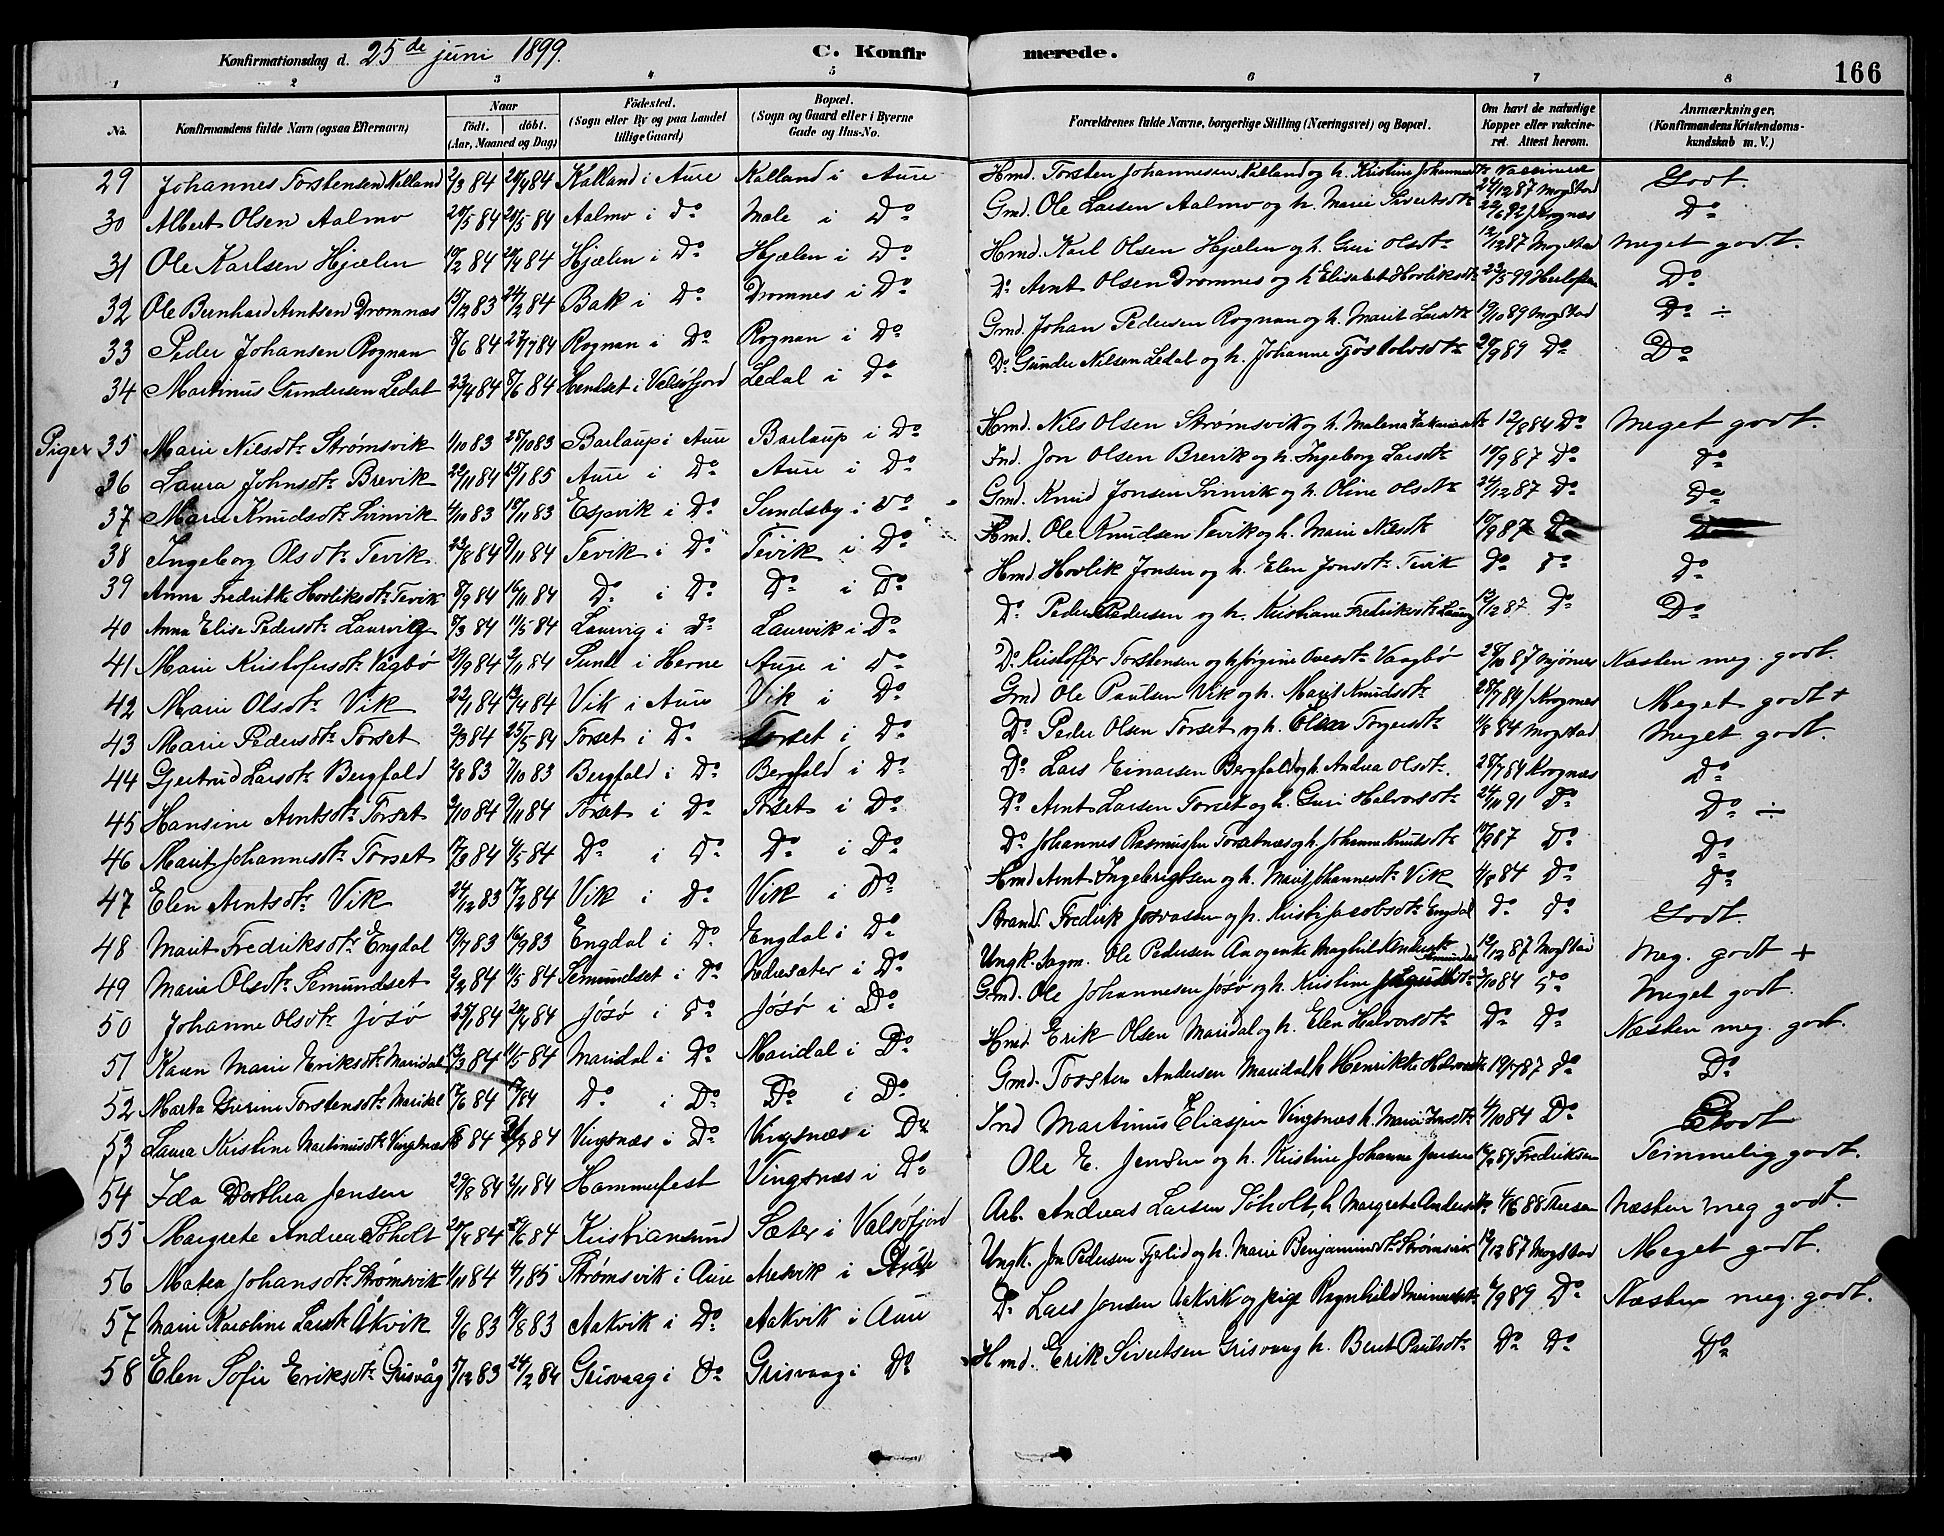 Konfirmationsdag d. 25de juni 1899. C. Konfirmerede. 166
1 2 3 4 5 6 7 8
No. Konfirmandens fulde Navn (ogsaa Efternavn) Naar født. døbt. (Aar, Maaned og Dag) Fødested. (Sogn eller By og paa Landet tillige Gaard) Bopæl. (Sogn og Gaard eller i Byerne Gade og Hus-No. Forældrenes fulde Navne, borgerlige Stilling (Næringsvei) og Bopæl. Om havt de naturlige Kopper eller vakcineret. Attest herom. Anmærkninger. (Konfirmandens Kristendomskundskab m. V.)
29 Johannes Torstensen Kalland 2/3 84 20/4 84 Kalland i Aure Kalland i Aure Hmd. Torsten Johannesen Kalland og h. Kristine Vaccineret 24/12 87 Mogstad Godt.
30 Albert Olsen Aalmo 20/5 84 Aalmo i Do Male i Do Gmd. Ole Larsen Aalmo og h. Marie Sivertsdtr 22/6 92 Krognæs Do
31 Ole Karlsen Hjælen 10/2 84 84 Hjælen i Do Hjælen i Do Hmd. Karl Olsen Hjælen og h. Guri Olsdtr 12/12 87 Mogstad Meget godt.
32 Ole Bernhard Arntsen Dromnæs 83 24/2 84 Bak i Do Dromnes i Do Do Arnt Olsen Dromnes og h. Elisabet Hovliksdtr 23/5 99 Do
33 Peder Johansen Rognan 8/6 84 27/7 84 Rognan i Do Rognan i Do Gmd. Johan Pedersen Rognan og h. Marit Larsdtr 19/10 89 Mogstad Do ÷
34 Martinus Gundersen Ledal 23/4 84 8/6 84 Henset i Valsøfjord Ledal i Do Do Gunder Nilsen Ledal og h. Johanne Fjøstolvsdtr 20/9 89 Do Do
Piger 35 Marie Nilsdtr Strømsvik 1/10 83 28/10 83 Barlaup i Aure Barlaup i Do Hmd. Nils Olsen Strømsvik og h. Malena 12/8 84 Do Meget godt.
36 Laura Johnsdtr Brevik 22/11 84 1 85 Aure i Do Aure i Do Ind. Jon Olsen Brevik og h. Ingeborg Larsdtr 10/9 87 Do Do
37 Marie Knudsdtr Svinvik 4/10 83 18/11 83 Espvik i Do Sundsby i Do Gmd. Knud Jonsen Svinvik og h. Oline Olsdtr 24/12 87 Do Do
38 Ingeborg Olsdtr Tevik 23/8 84 9/11 84 Tevik i Do Tevik i Do Hmd. Ole Knudsen Tevik og h. Marie Nilsdtr 10/9 87 Do Do
39 Anna Fredrikke Hovliksdtr Tevik 8/9 84 16/11 84 Do i Do Do i Do Hmd. Hovlik Jonsen og h. Elen Jonsdtr Tevik Do Do Do
40 Anna Elise Pedersdtr Laurvig 8/3 84 11/5 84 Laurvig i Do Laurvik i Do Do Peder Pedersen og h. Kristiane Fredriksdtr Laurvig 12/12 87 Do Do
41 Marie Kristofersdtr Vågbø 29/9 84 2/11 84 Sunde i Herne Aure i Do Do Kristoffer Torstensen og h. Jørgine Ovesdtr Vaagbø 28/10 87 Mjønes Næsten meg. godt.
42 Marie Olsdtr Vik 22/1 84 13/4 84 Vik i Aure Vik i Do Gmd Ole Paulsen Vik og h. Marit Knudsdtr 28/7 84 Krognes Meget godt +
43 Marie Pedersdtr Torset 2/3 84 25/5 84 Torset i Do Torset i Do Do Peder Olsen Torset og h. Elen Torgersdtr 11/8 84 Mogstad Meget godt.
44 Gjertrud Larsdtr Bergfald 2/8 83 7/10 83 Bergfald i Do Bergfald i Do Do Lars Einarsen Bergfald og h. Andrea Olsdtr. 28/7 84 Krognæs Do
45 Hansine Arntsdtr Torset 2/10 84 9/11 84 Torset i Do Torset i Do Do Arnt Larsen Torset og h. Guri Halvorsdtr 24/11 91 Do Do ÷
46 Marit Johannesdtr Torset 84 4/5 84 Do i Do Do i Do Do Johannes Rasmussen Torsetnæs og h. Johanna Knudsdtr 10/9 87 Do Do
47 Elen Arntsdtr Vik 24/12 83 17/2 84 Vik i Do Vik i Do Hmd Arnt Ingebrigtsen og h. Marit Johannesdtr Vik 4/8 84 Do Do
48 Marit Fredriksdtr Engdal 13/7 83 16/9 83 Engdal i Do Engdal i Do Strands. Fredrik Josvasen og h. Kirsti Jacobsdtr Engdal Do Do Godt.
49 Marie Olsdtr Semundset 2/2 84 11/5 84 Semundset i Do i Do Ungk. Ole Pedersen og enke Maghild 12/12 87 Mogstad Meg. godt +
50 Johanne Olsdtr Jøsø 25/1 84 20/4 84 Jøsø i Do Jøsø i Do Gmd. Ole Johannesen Jøsø og h. Kristine /10 84 Do Meget godt.
51 Karen Marie Eriksdtr Maridal 13/3 84 11/5 84 Maridal i Do Maridal i Do Hmd Erik Olsen Maridal og h. Elen Halvorsdtr Do Do Næsten meg. godt.
52 Marta Torstensdtr Maridal 17/6 84 84 Do i Do Do i Do Gmd. Torsten Andersen Maridal h. Henrikke 19/7 87 Do Do
53 Laura Kristine Martinusdtr Vingsnæs 84 84 Vingsnæs i Do Vingsnæs i Do Ind Martinus Eliassen Vingsnes h. Marie 4/10 84 Do Godt
54 Ida Dorthea Jensen 29/8 84 2/11 84 Hammerfest Vingsnæs i Do Ole E. Jensen og h. Kristine Johanne Jensen 87 Fredriksen Temmelig godt.
55 Margrete Andrea Søholt 20/4 84 /6 84 Kristiansund Sæter i Valsøfjord Arb. Andreas Larsen Søholt, h. Margrete 4/6 88 Næsten meg godt.
56 Matea Johansdtr Strømsvik 1/11 84 4/1 85 Strømsvik i Aure Aresvik i Aure Ungk. Jon Pedersen Fjelid og h. Marie Benjaminsdtr Strømsvik 12/12 87 Mogstad Meget godt.
57 Marie Karoline Larsdtr Åkvik 9/6 83 19/8 83 Aakvik i Do Aakvik i Aure Do Lars Jonsen Aakvik og pige Ragnhild 6/9 89 Do Næsten meg. godt.
58 Elen Sofie Eriksdtr Grisvåg 5/12 83 24/2 84 Grisvaag i Do Grisvaag i Do Hmd. Erik Sivertsen Grisvaag h. Berit Paulsdtr Do Do Do